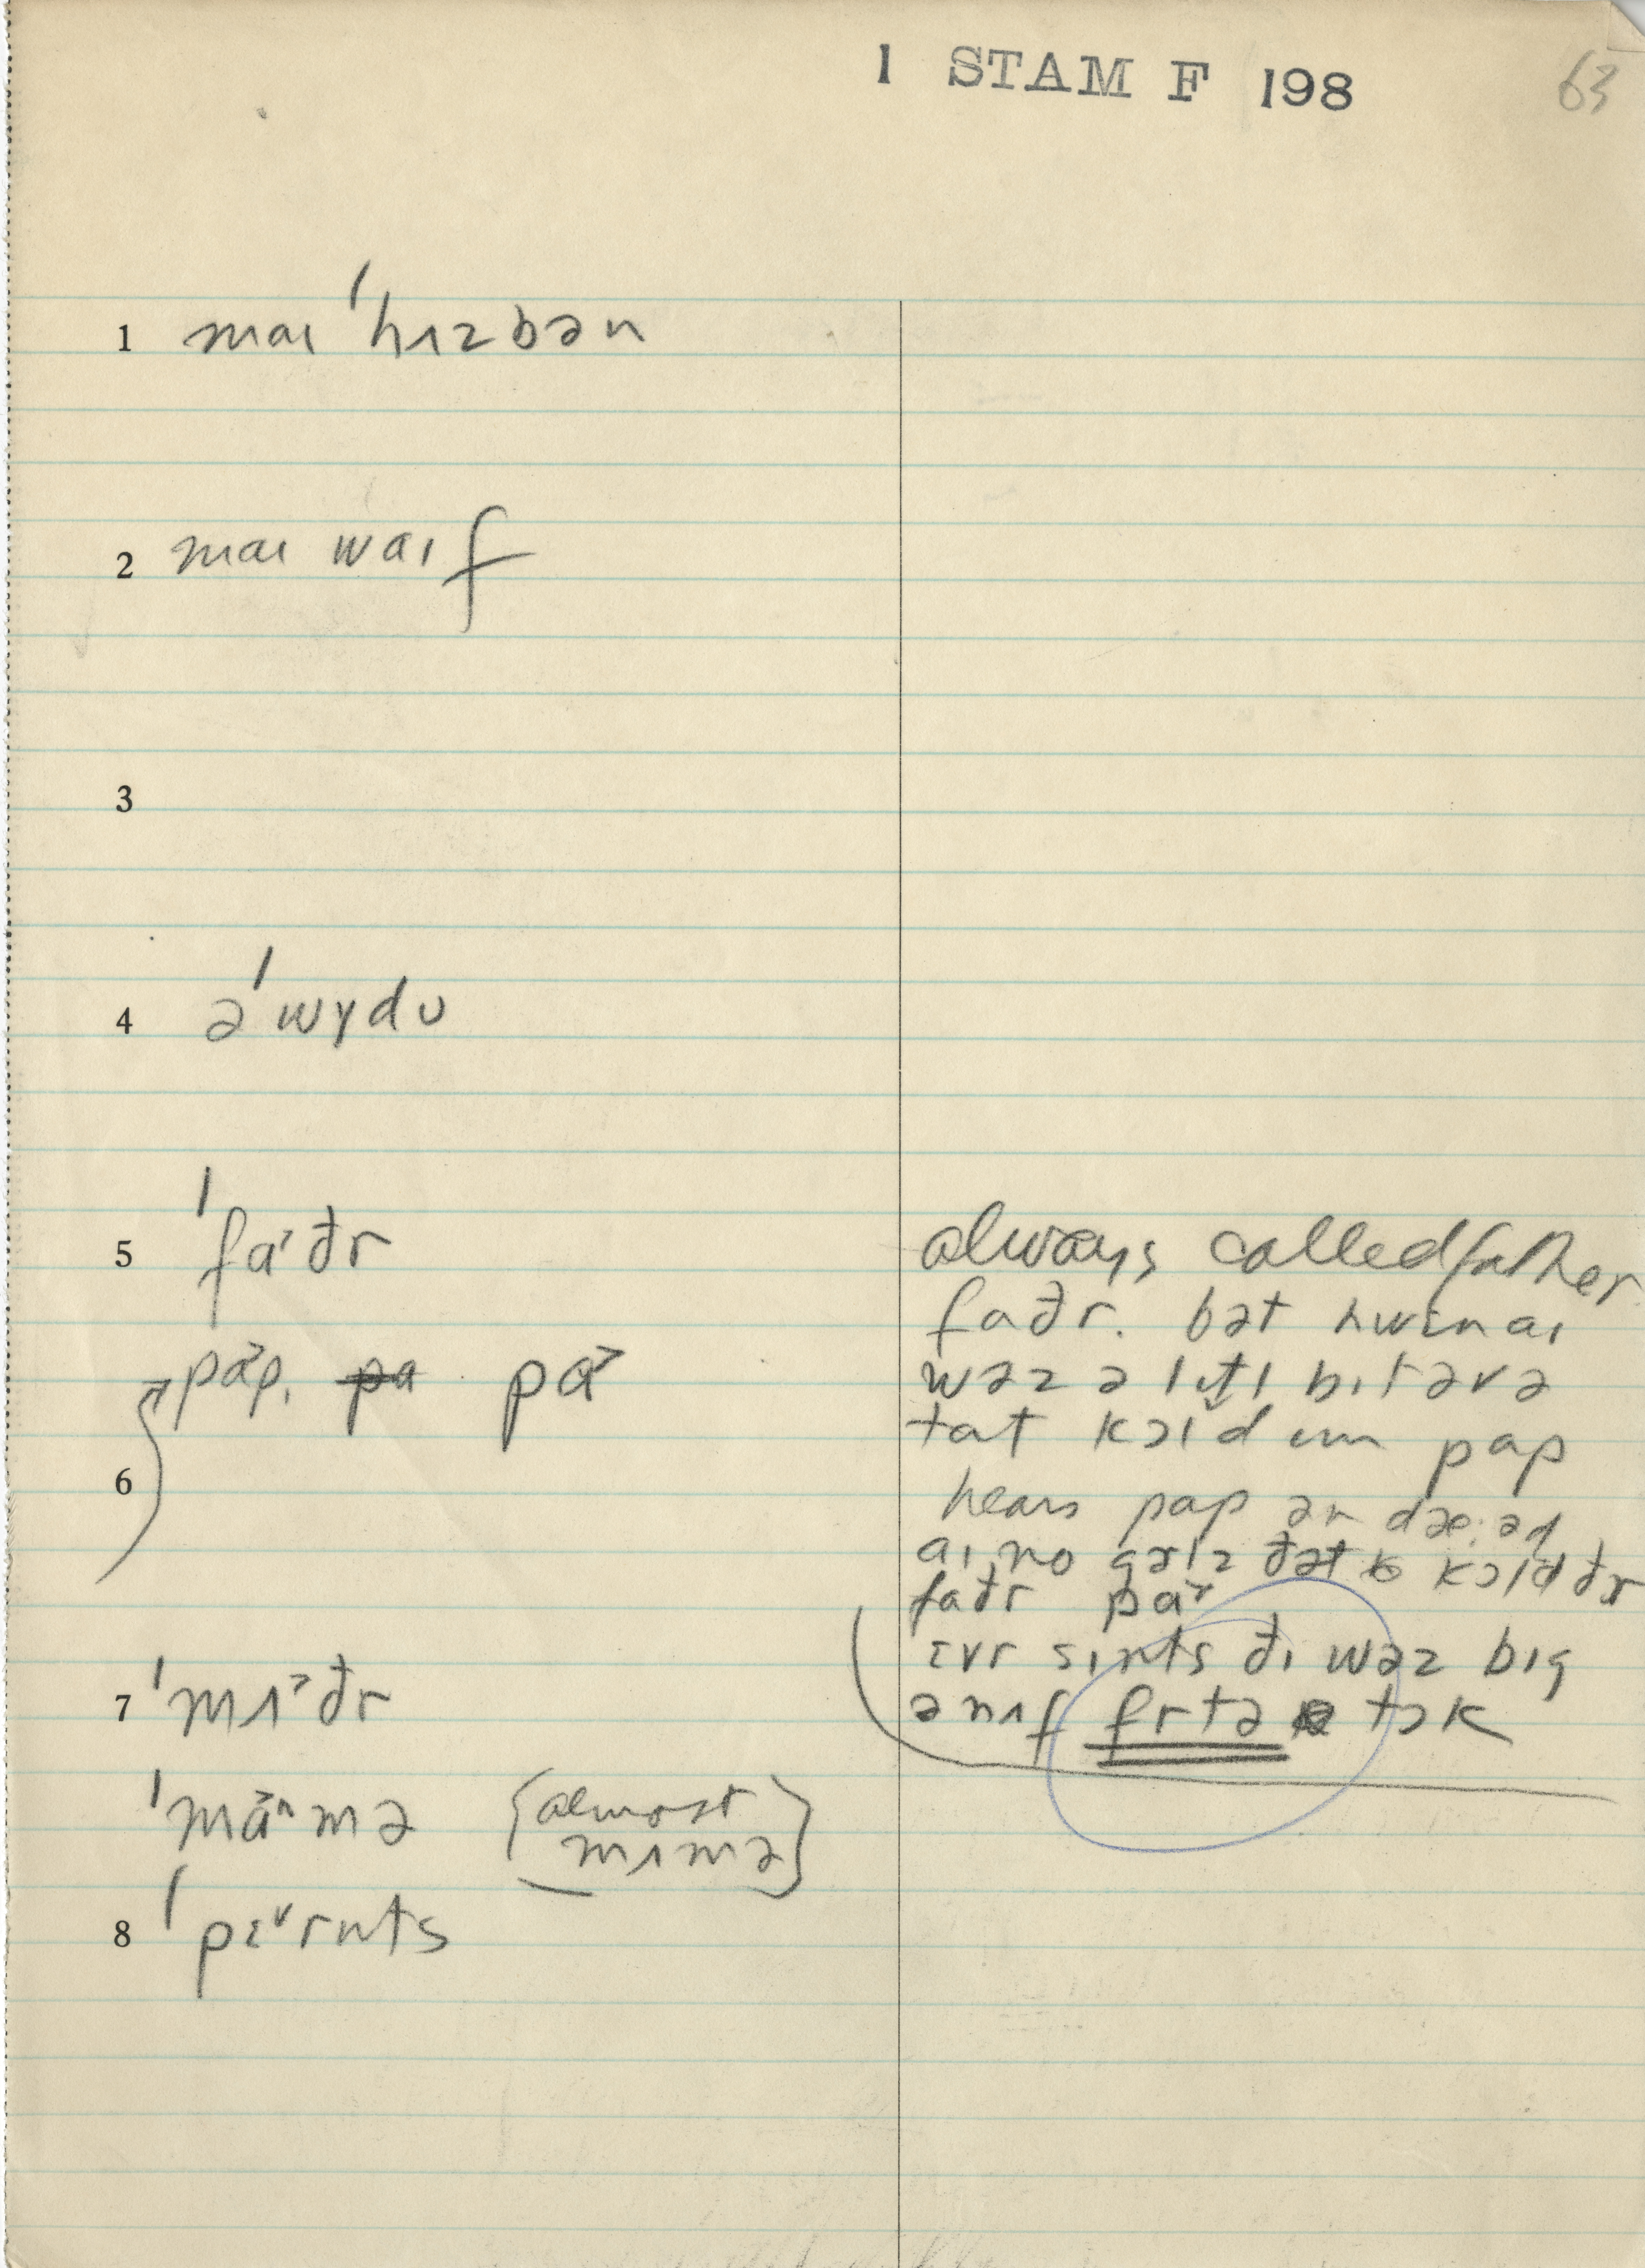 1 STAM F 198 63
1 maɪ ˈhʌzbən
2 maɪ waɪf
3
4 ə ˈwɪdʊ
5 ˈfa˃ðr
pa˃p. pa pa˃
6
7 ˈmʌ˃ðr
ˈmã˃ⁿmə {almost mʌmə}
8 ˈpɛ˅rnts
always called father
faðr. bət hwɛn aɪ
wəz ə lɪtl bɪt əv ə
tat kɔld ɪm pap
hears pap ən dæ·əd
aɪ no gɜlz ðət kɔld ðɜ
faðr pa˃
ɛvr sɪnts ðɪ wəz bɪg
ənʌf frtə tɔk